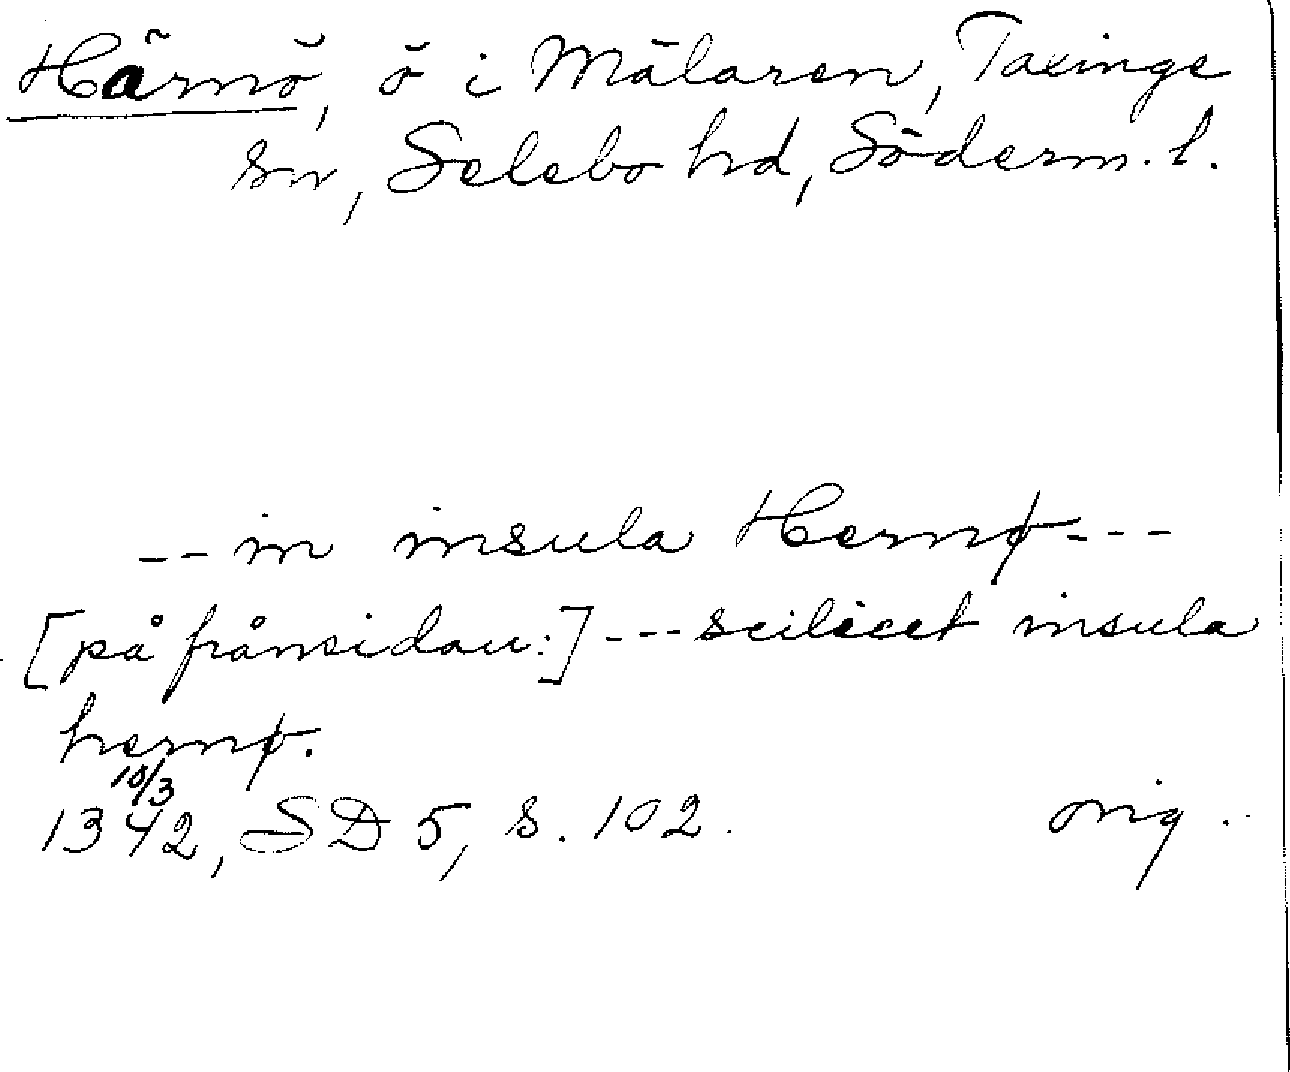 Härnö, ö i Mälaren, Taxinge
sn, Selebo hd, Söderm. l.
-- in insula Hernø ---
[på frånsidan:] --- scilicet insula
hernø.
10/3
1342, SD 5, s. 102. orig.